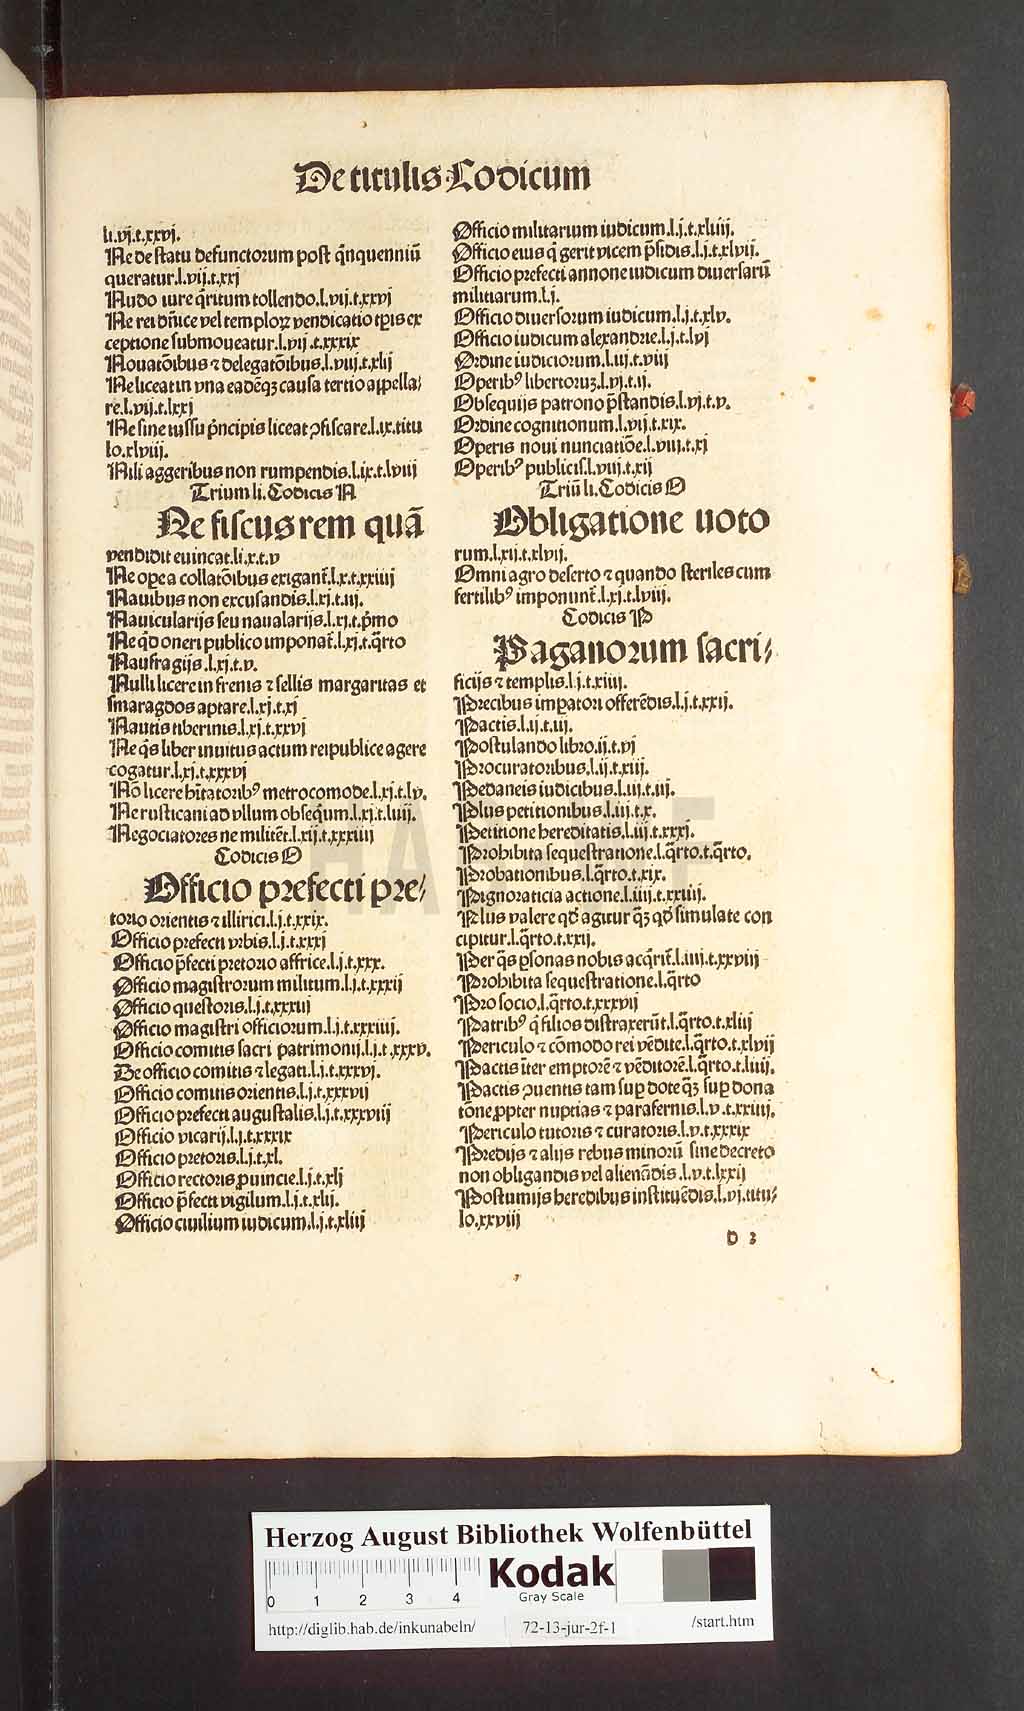 De titulis Codicum
li.vj.t.xxvj.
Ne de statu defunctorum post q̃nquenniũ
queratur.l.vij.t.xxj
Nudo iure q̃ritum tollendo.l.vij.t.xxvj
Ne rei dñice vel temploꝝ vendicatio tp̃is ex
ceptione submoueatur.l.vij.t.xxxix
Nouatõibus ⁊ delegatõibus.l.viij.t.xlij
Ne liceat in vna eadẽqꝫ causa tertio appella⸗
re.l.vij.t.lxxj
Ne sine iussu p̃ncipis liceat ꝯfiscare.l.ix.titu
lo.xlviij.
Nili aggeribus non rumpendis.l.ix.t.lviij
Trium li. Codicis N
Ne fiscus rem quã
vendidit euincat.li.x.t.v
Ne oꝑe a collatõibus exigant̃.l.x.t.xxiiij
Nauibus non excusandis.l.xj.t.iij.
Nauicularijs seu naualarijs.l.xj.t.p̃mo
Ne qđ oneri publico imponat̃.l.xj.t.q̃rto
Naufragijs.l.xj.t.v.
Nulli licere in frenis ⁊ sellis margaritas et
smaragdos aptare.l.xj.t.xj
Nautis tiberinis.l.xj.t.xxvj
Ne q̃s liber inuitus actum reipublice agere
cogatur.l.xj.t.xxxvj
Nõ licere hĩtatoribꝰ metrocomode.l.xj.t.lv.
Ne rusticani ad vllum obseq̃um.l.xj.t.liiij.
Negociatores ne militẽt.l.xij.t.xxxiiij
Codicis O
Officio prefecti pre⸗
torio orientis ⁊ illirici.l.j.t.xxix.
Officio prefecti vrbis.l.j.t.xxxj
Officio p̃fecti pretorio affrice.l.j.t.xxx.
Officio magistrorum militum.l.j.t.xxxij
Officio questoris.l.j.t.xxxiij
Officio magistri officiorum.l.j.t.xxxiiij.
Officio comitis sacri patrimonij.l.j.t.xxxv.
De officio comitis ⁊ legati.l.j.t.xxxvj.
Officio comitis orientis.l.j.t.xxxvij
Officio prefecti augustalis.l.j.t.xxxviij
Officio vicarij.l.j.t.xxxix
Officio pretoris.l.j.t.xl.
Officio rectoris ꝓuincie.l.j.t.xlj
Officio p̃fecti vigilum.l.j.t.xlij.
Officio ciuilium iudicum.l.j.t.xliij
Officio militarium iudicum.l.j.t.xliiij.
Officio eius q̃ gerit vicem p̃sidis.l.j.t.xlvij.
Officio prefecti annone iudicum diuersarũ
militiarum.l.j.
Officio diuersorum iudicum.l.j.t.xlv.
Officio iudicum alexandrie.l.j.t.lvj
Ordine iudiciorum.l.iij.t.viij
Operibꝰ libertoruꝫ.l.vj.t.ij.
Obsequijs patrono p̃standis.l.vj.t.v.
Ordine cognitionum.l.vij.t.xix.
Operis noui nunciatiõe.l.viij.t.xj
Operibꝰ publicis.l.viij.t.xij
Triũ li. Codicis O
Obligatione uoto
rum.l.xij.t.xlvij.
Omni agro deserto ⁊ quando steriles cum
fertilibꝰ imponunt̃.l.xj.t.lviij.
Codicis P
Paganorum sacri⸗
ficijs ⁊ templis.l.j.t.xiiij.
Precibus imꝑatori offerẽdis.l.j.t.xxij.
Pactis.l.ij.t.iij.
Postulando libro.ij.t.vj
Procuratoribus.l.ij.t.xiij.
Pedaneis iudicibus.l.iij.t.iij.
Plus petitionibus.l.iij.t.x.
Petitione hereditatis.l.iij.t.xxxj.
Prohibita sequestratione.l.q̃rto.t.q̃rto.
Probationibus.l.q̃rto.t.xix.
Pignoraticia actione.l.iiij.t.xxiiij.
Plus valere qđ agitur q̃ꝫ qđ simulate con
cipitur.l.q̃rto.t.xxij.
Per q̃s ꝑsonas nobis acq̃rit̃.l.iiij.t.xxviij
Prohibita sequestratione.l.q̃rto
Pro socio.l.q̃rto.t.xxxvij
Patribꝰ q̃ filios distraxerũt.l.q̃rto.t.xliij
Periculo ⁊ cõmodo rei vẽdite.l.q̃rto.t.xlvij
Pactis ĩter emptorẽ ⁊ vẽditorẽ.l.q̃rto.t.liiij.
Pactis ꝯuentis tam suꝑ dote q̃ꝫ suꝑ dona
tõne ꝓpter nuptias ⁊ parafernis.l.v.t.xxiiij.
Periculo tutoris ⁊ curatoris.l.v.t.xxxix
Predijs ⁊ alijs rebus minorũ sine decreto
non obligandis vel alienãdis.l.v.t.lxxij
Postumijs heredibus instituẽdis.l.vj.titu⸗
lo.xxviij
D 3
HAB WF
Herzog August Bibliothek Wolfenbüttel
0 1 2 3 4
Kodak
Gray Scale
http://diglib.hab.de/inkunabeln/ 72-13-jur-2f-1 /start.htm